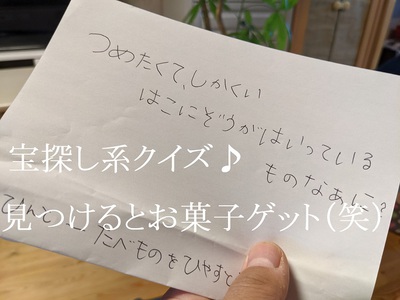 つめたくて、しかくい
はこにぞうがはいっている
ものなあに?
宝探し系クイズ♪
見つけるとお菓子ゲット(笑)
たべものをひやすと